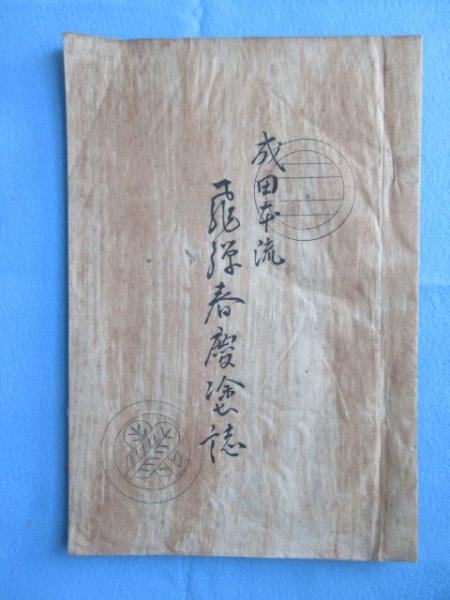 成田本流
飛騨春慶塗誌